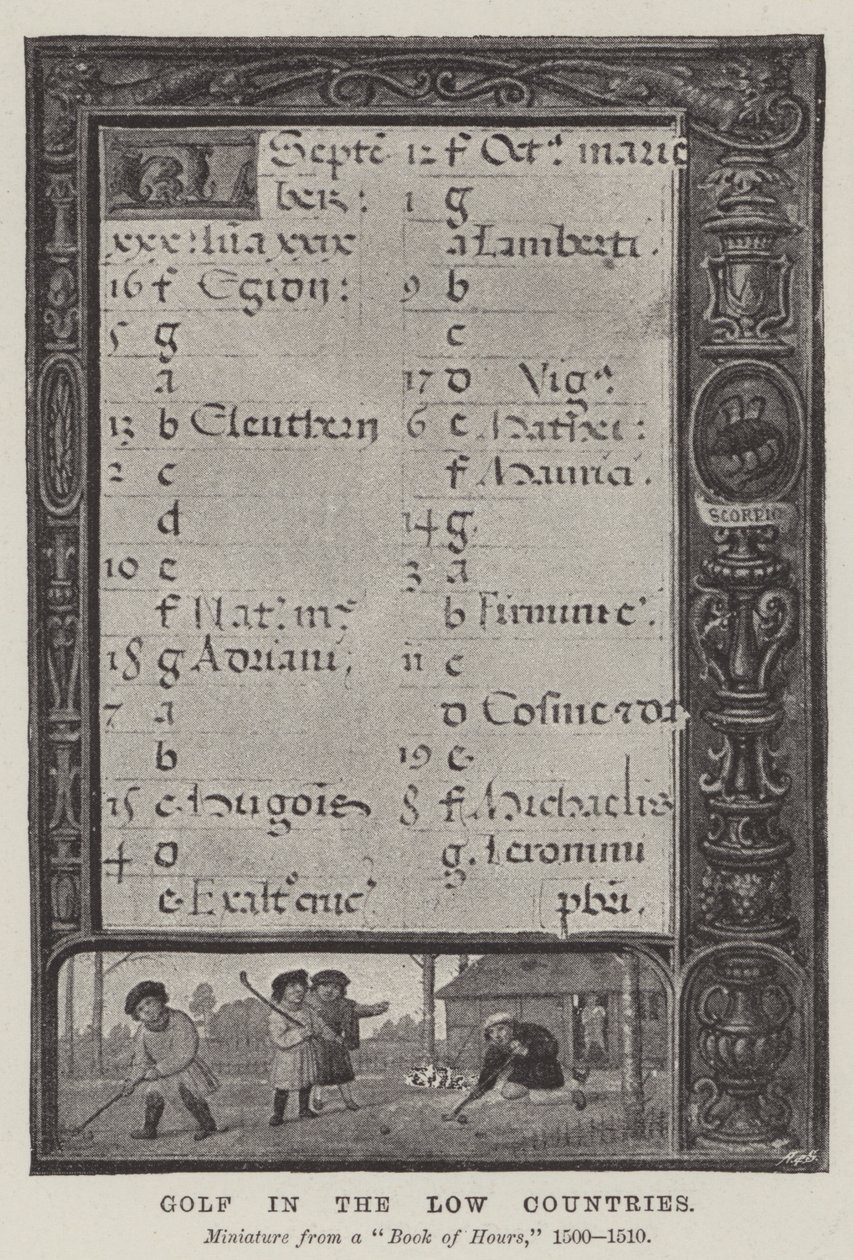 KL Septē
ber:
xxx: lūa xxix
16 f Egidij:
5 g
a
13 b Eleutherij
2 c
d
10 e
f Nat: mˢ
18 g Adriani;
7 a
b
15 c Hugonis
4 d
e Exaltº cruc'
12 f Octª. marie
1 g
a Lamberti.
9 b
c
17 d Vigª.
6 e Mathei:
f Mauricii.
14 g.
3 a
b Firmini eˢ.
11 c
d Cosme 7 da.
19 e
8 f Michaelis
g. Ieronimi
pbri.
SCORPIO
A&S.
GOLF IN THE LOW COUNTRIES.
Miniature from a "Book of Hours," 1500—1510.